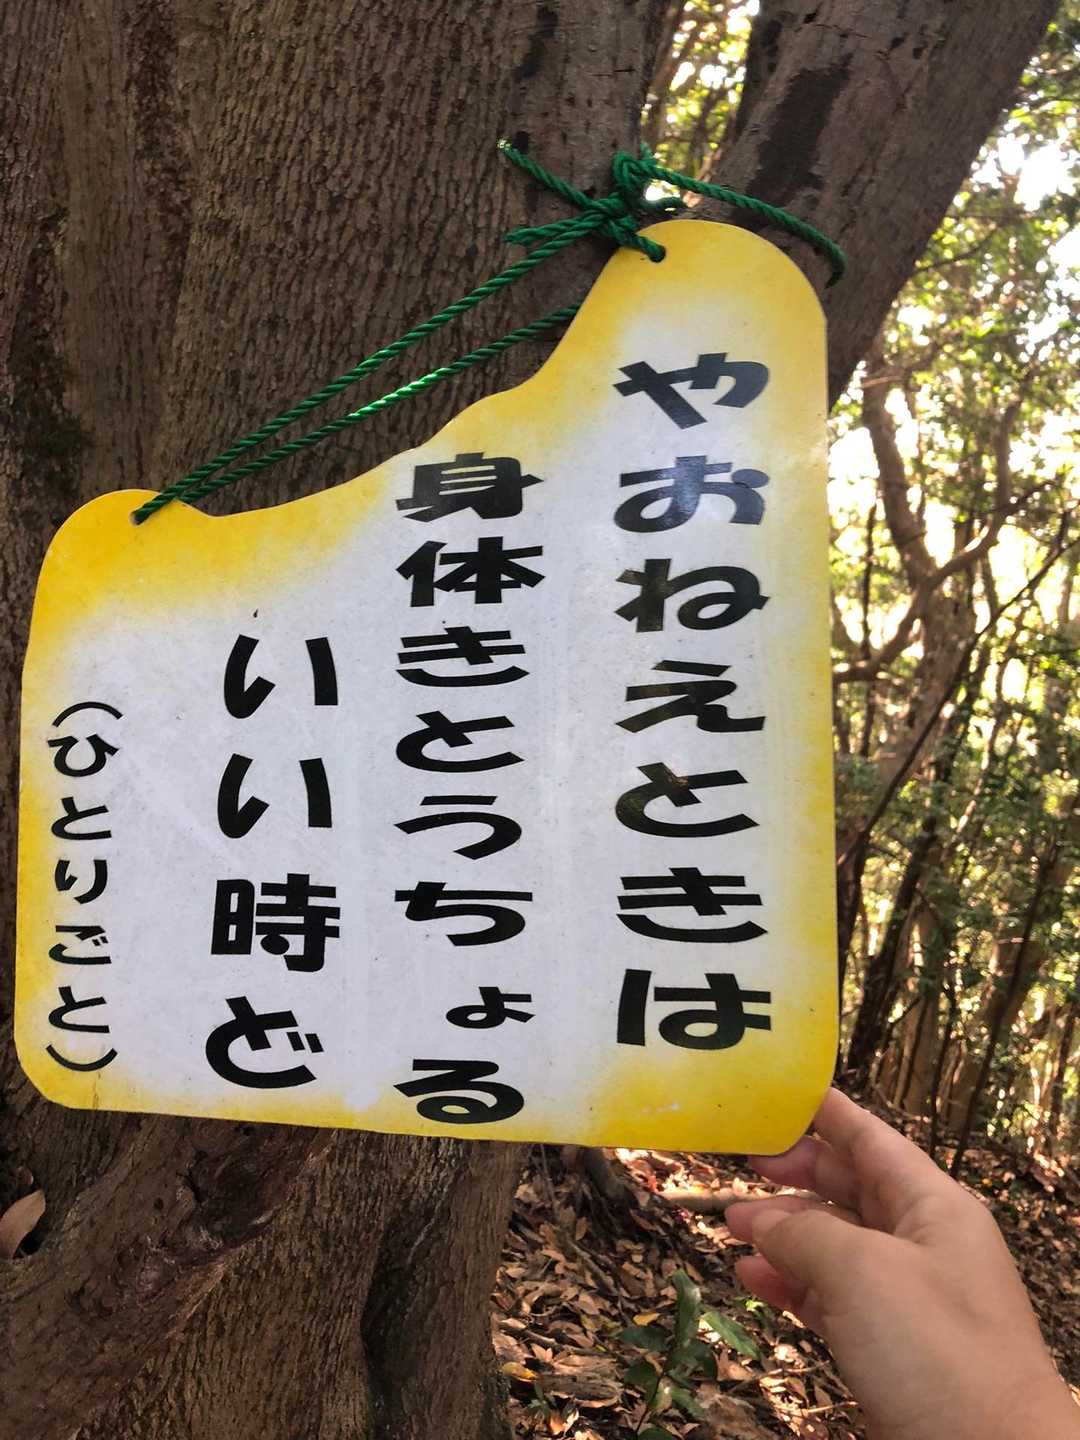 やおねえときは
身体きとうちょる
いい時ど
(ひとりごと)